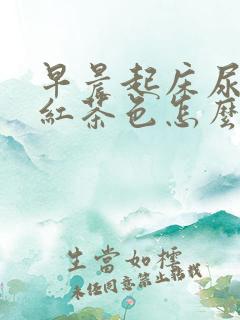 早晨起床尿
紅茶色怎麼
生當如樗
未經同意禁止轉載